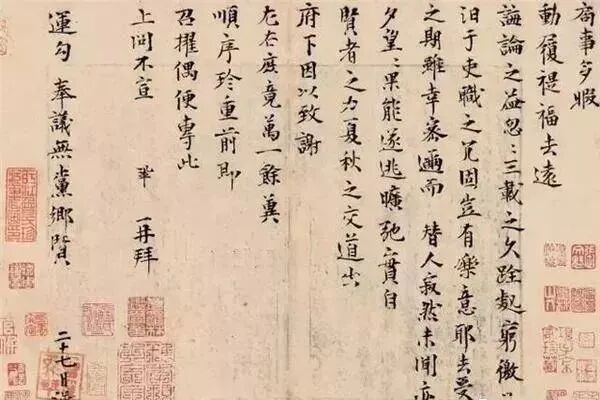 局事多暇
動履禔福去遠
誨論之益忽〻三載之久跧處窮徼
汩于吏職之冗固豈有樂意耶去受
之期雖幸密邇而替人寂然未聞亦
夕望〻果能遂逃曠弛實自
賢者之力夏秋之交道出
府下因以致謝
左右庶竟萬一餘冀
順序珍重前即
召擢偶便專此
上問不宣 鞏再拜
運勾奉議無黨鄉賢
二十七日謹